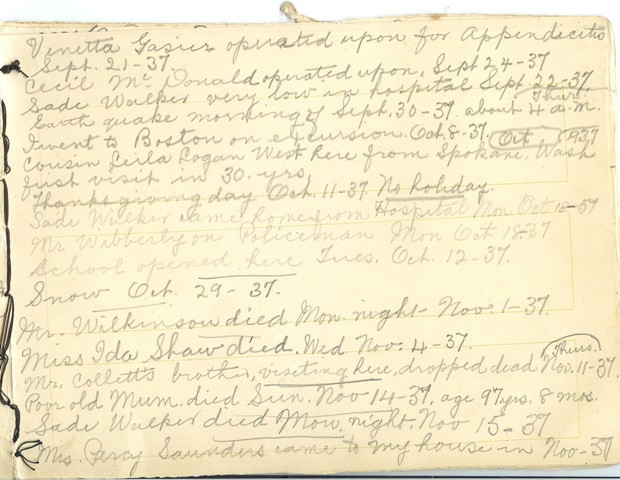 Vinetta Gasier operated upon for Appendicitis
Sept. 21-37.
Cecil McDonald operated upon, Sept 24-37
Sade Walker very low in hospital Sept. 22-37.
Earth quake morning of Sept. 30-37. about 4 a.m. Thur
I went to Boston on excursion. Oct. 8-37. Oct 8 1937
Cousin Leila Logan West here from Spokane. Wash
first visit in 30. yrs.
Thanksgiving day Oct. 11-37 No holiday.
Sade Walker came home from Hospital Mon Oct 18-37
Mr. Wibberly on Policeman Mon Oct 18-37
School opened here Tues. Oct. 12-37.
Snow Oct. 29-37.
Mr. Wilkinson died Mon. night - Nov. 1-37.
Miss Ida Shaw died. Wed Nov. 4-37.
Mr. Colletts brother, visiting here, dropped dead Nov. 11-37. Thurs.
Poor old Mum. died Sun. Nov 14-37. age 97 yrs. 8 mos.
Sade Walker died Mon. night. Nov 15-37
Mrs. Percy Saunders came to my house in Nov-37